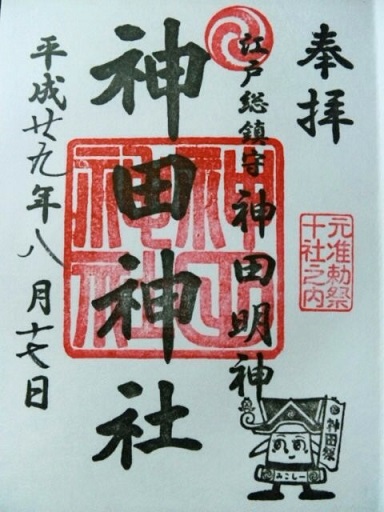 奉拝
元准勅祭
十社之内
江戸総鎮守 神田明神
神田神社
神田神社
平成廿九年八月十七日
神田祭
みこしー